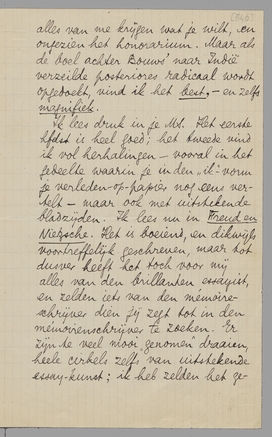 [846]
alles van me krijgen wat je wilt, en
ongezien het honorarium. Maar als
de boel achter Bouws' naar Indië
verzeilde posteriores radicaal wordt
opgedoekt, vind ik het best, - en zelfs
magnifiek.
Ik lees druk in je Ms. Het eerste
hfdst is heel goed; het tweede vind
ik vol herhalingen - vooral in het
gedeelte waarin je in den "ik"-vorm
je verleden-op-papier nog eens ver-
telt - maar ook met uitstekende
bladzijden. Ik lees nu in Freud en
Nietzsche. Het is boeiend, en dikwijls
voortreffelijk geschreven, maar tot
dusver heeft het toch voor mij
alles van den brillanten essayist,
en zelden iets van den memoire-
schrijver dien jij zegt tot in den
memoirenschrijver te zoeken. Er
zijn te veel mooi genomen draaien,
heele cirkels zelfs van uitstekende
essay-kunst; ik heb zelden het ge-